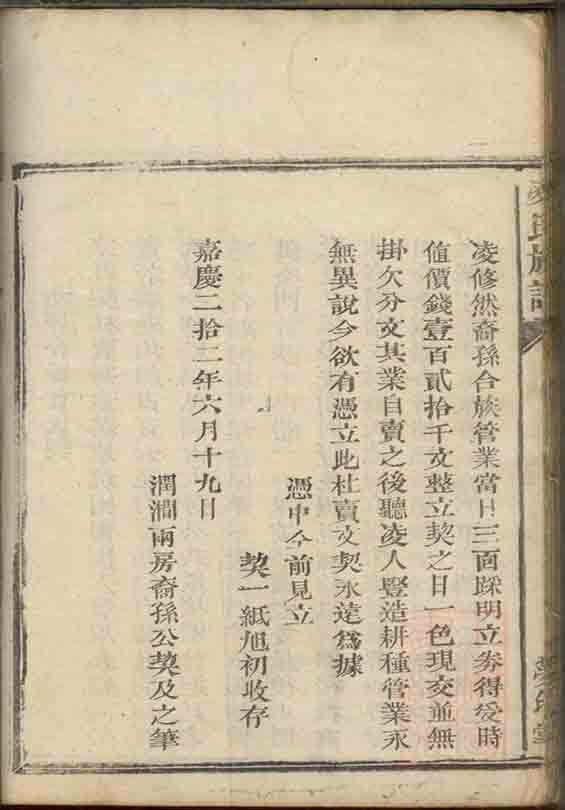 凌修然裔孫合族管業當日三面踩明立券得受時
值價錢壹百貳拾千文整立契之日一色現交並無
掛欠分文其業自賣之後聽凌人豎造耕種管業永
無異說今欲有憑立此杜賣文契永遠為據
憑中今前見立
契一紙旭初收存
嘉慶二拾二年六月十九日
潤澗兩房裔孫公契及之筆